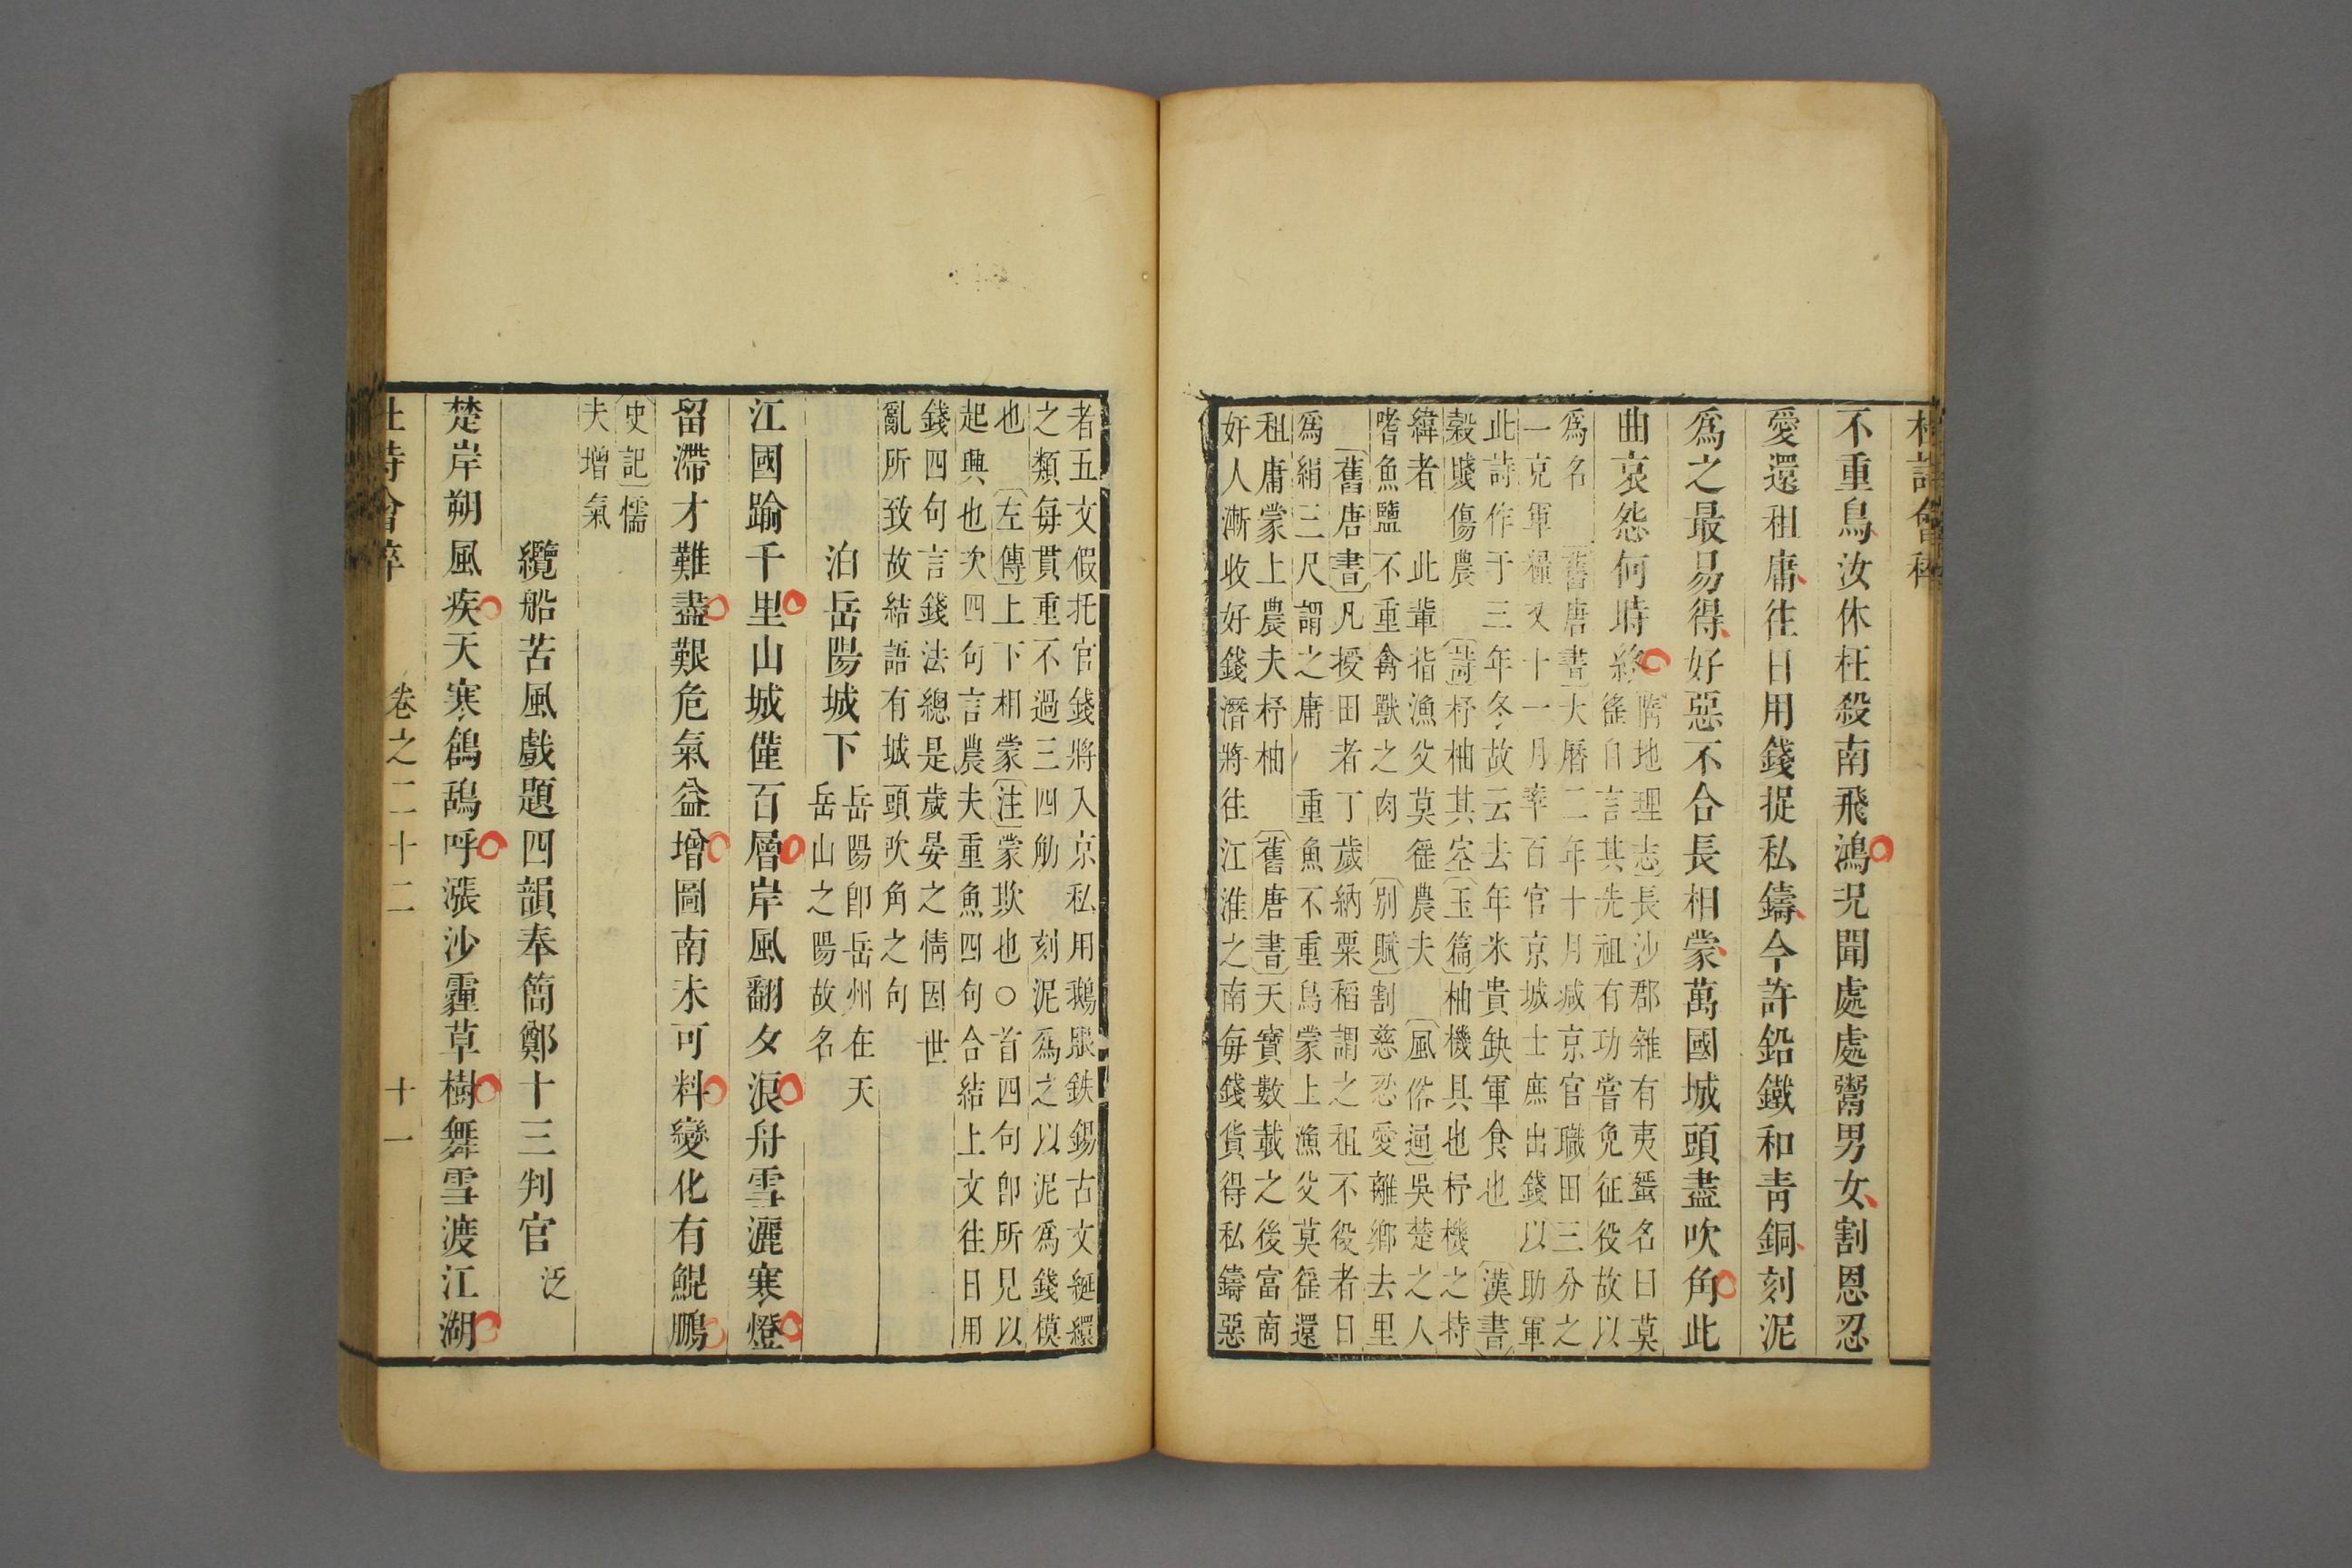 杜詩會稡
不重鳥汝休枉殺南飛鴻況聞處處鬻男女割恩忍
愛還租庸徃日用錢捉私鑄今許鉛鐵和青銅刻泥
爲之最易得好惡不合長相蒙萬國城頭盡吹角此
曲哀怨何時終
隋地理志長沙郡雜有夷蜑名曰莫
徭自言其先祖有功嘗免征役故以
爲名
舊唐書大曆二年十月减京官職田三分之
一充軍糧又十一月率百官京城士庶出錢以助軍
此詩作于三年冬故云去年米貴缺軍食也
漢書
穀賤傷農
詩杼柚其空
玉篇柚機具也杼機之持
緯者
此輩指漁父莫徭農夫
風俗通吳楚之人
嗜魚鹽不重禽獸之肉
別賦割慈忍愛離鄉去里
舊唐書凡授田者丁歲納粟稻謂之租不役者日
爲絹三尺謂之庸
重魚不重鳥蒙上漁父莫徭還
租庸蒙上農夫杼柚
舊唐書天寶數載之後富商
好人漸收好錢潛將徃江淮之南每錢貨得私鑄惡
者五文假托官錢將入京私用鵝眼鉄錫古文綖繯
之類每貫重不過三四觔
刻泥爲之以泥爲錢模
也
左傳上下相蒙注蒙欺也○首四句卽所見以
起興也次四句言農夫重魚四句合結上文徃日用
錢四句言錢法總是歲晏之情因世
亂所致故結語有城頭吹角之句
泊岳陽城下
岳陽卽岳州在天
岳山之陽故名
江國踰千里山城僅百層岸風翻夕浪舟雪灑寒燈
留滯才難盡艱危氣益增圖南未可料變化有鯤鵬
史記儒
夫增氣
纜船苦風戲題四韻奉簡鄭十三判官
泛
楚岸朔風疾天寒鶬鴰呼漲沙霾草樹舞雪渡江湖
杜詩會稡
卷之二十二
十一